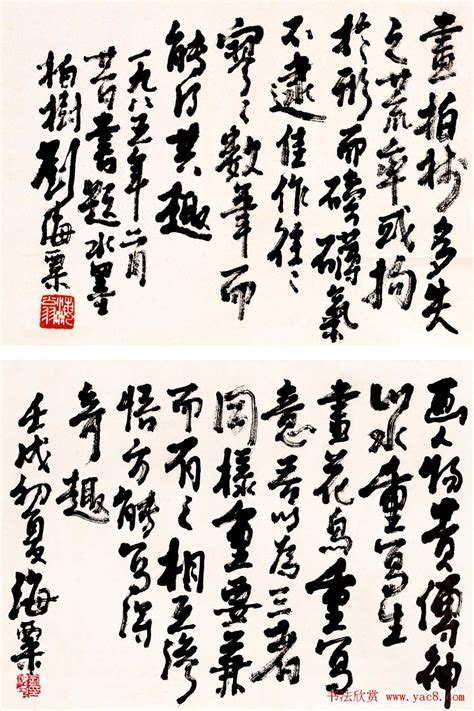 畫柏樹多失
之荒率或拘
於形而磅礴氣
不逮佳作往往
寥寥數筆而
能得其趣
一九八五年二月
廿日書題水墨
柏樹 劉海粟
画人物貴傳神
山水重寫生
畫花鳥重寫
意吾以為三者
同樣重要兼
而有之相互滲
悟方能寫得
奇趣
壬戌初夏海粟
书法欣赏 www.yac8.com